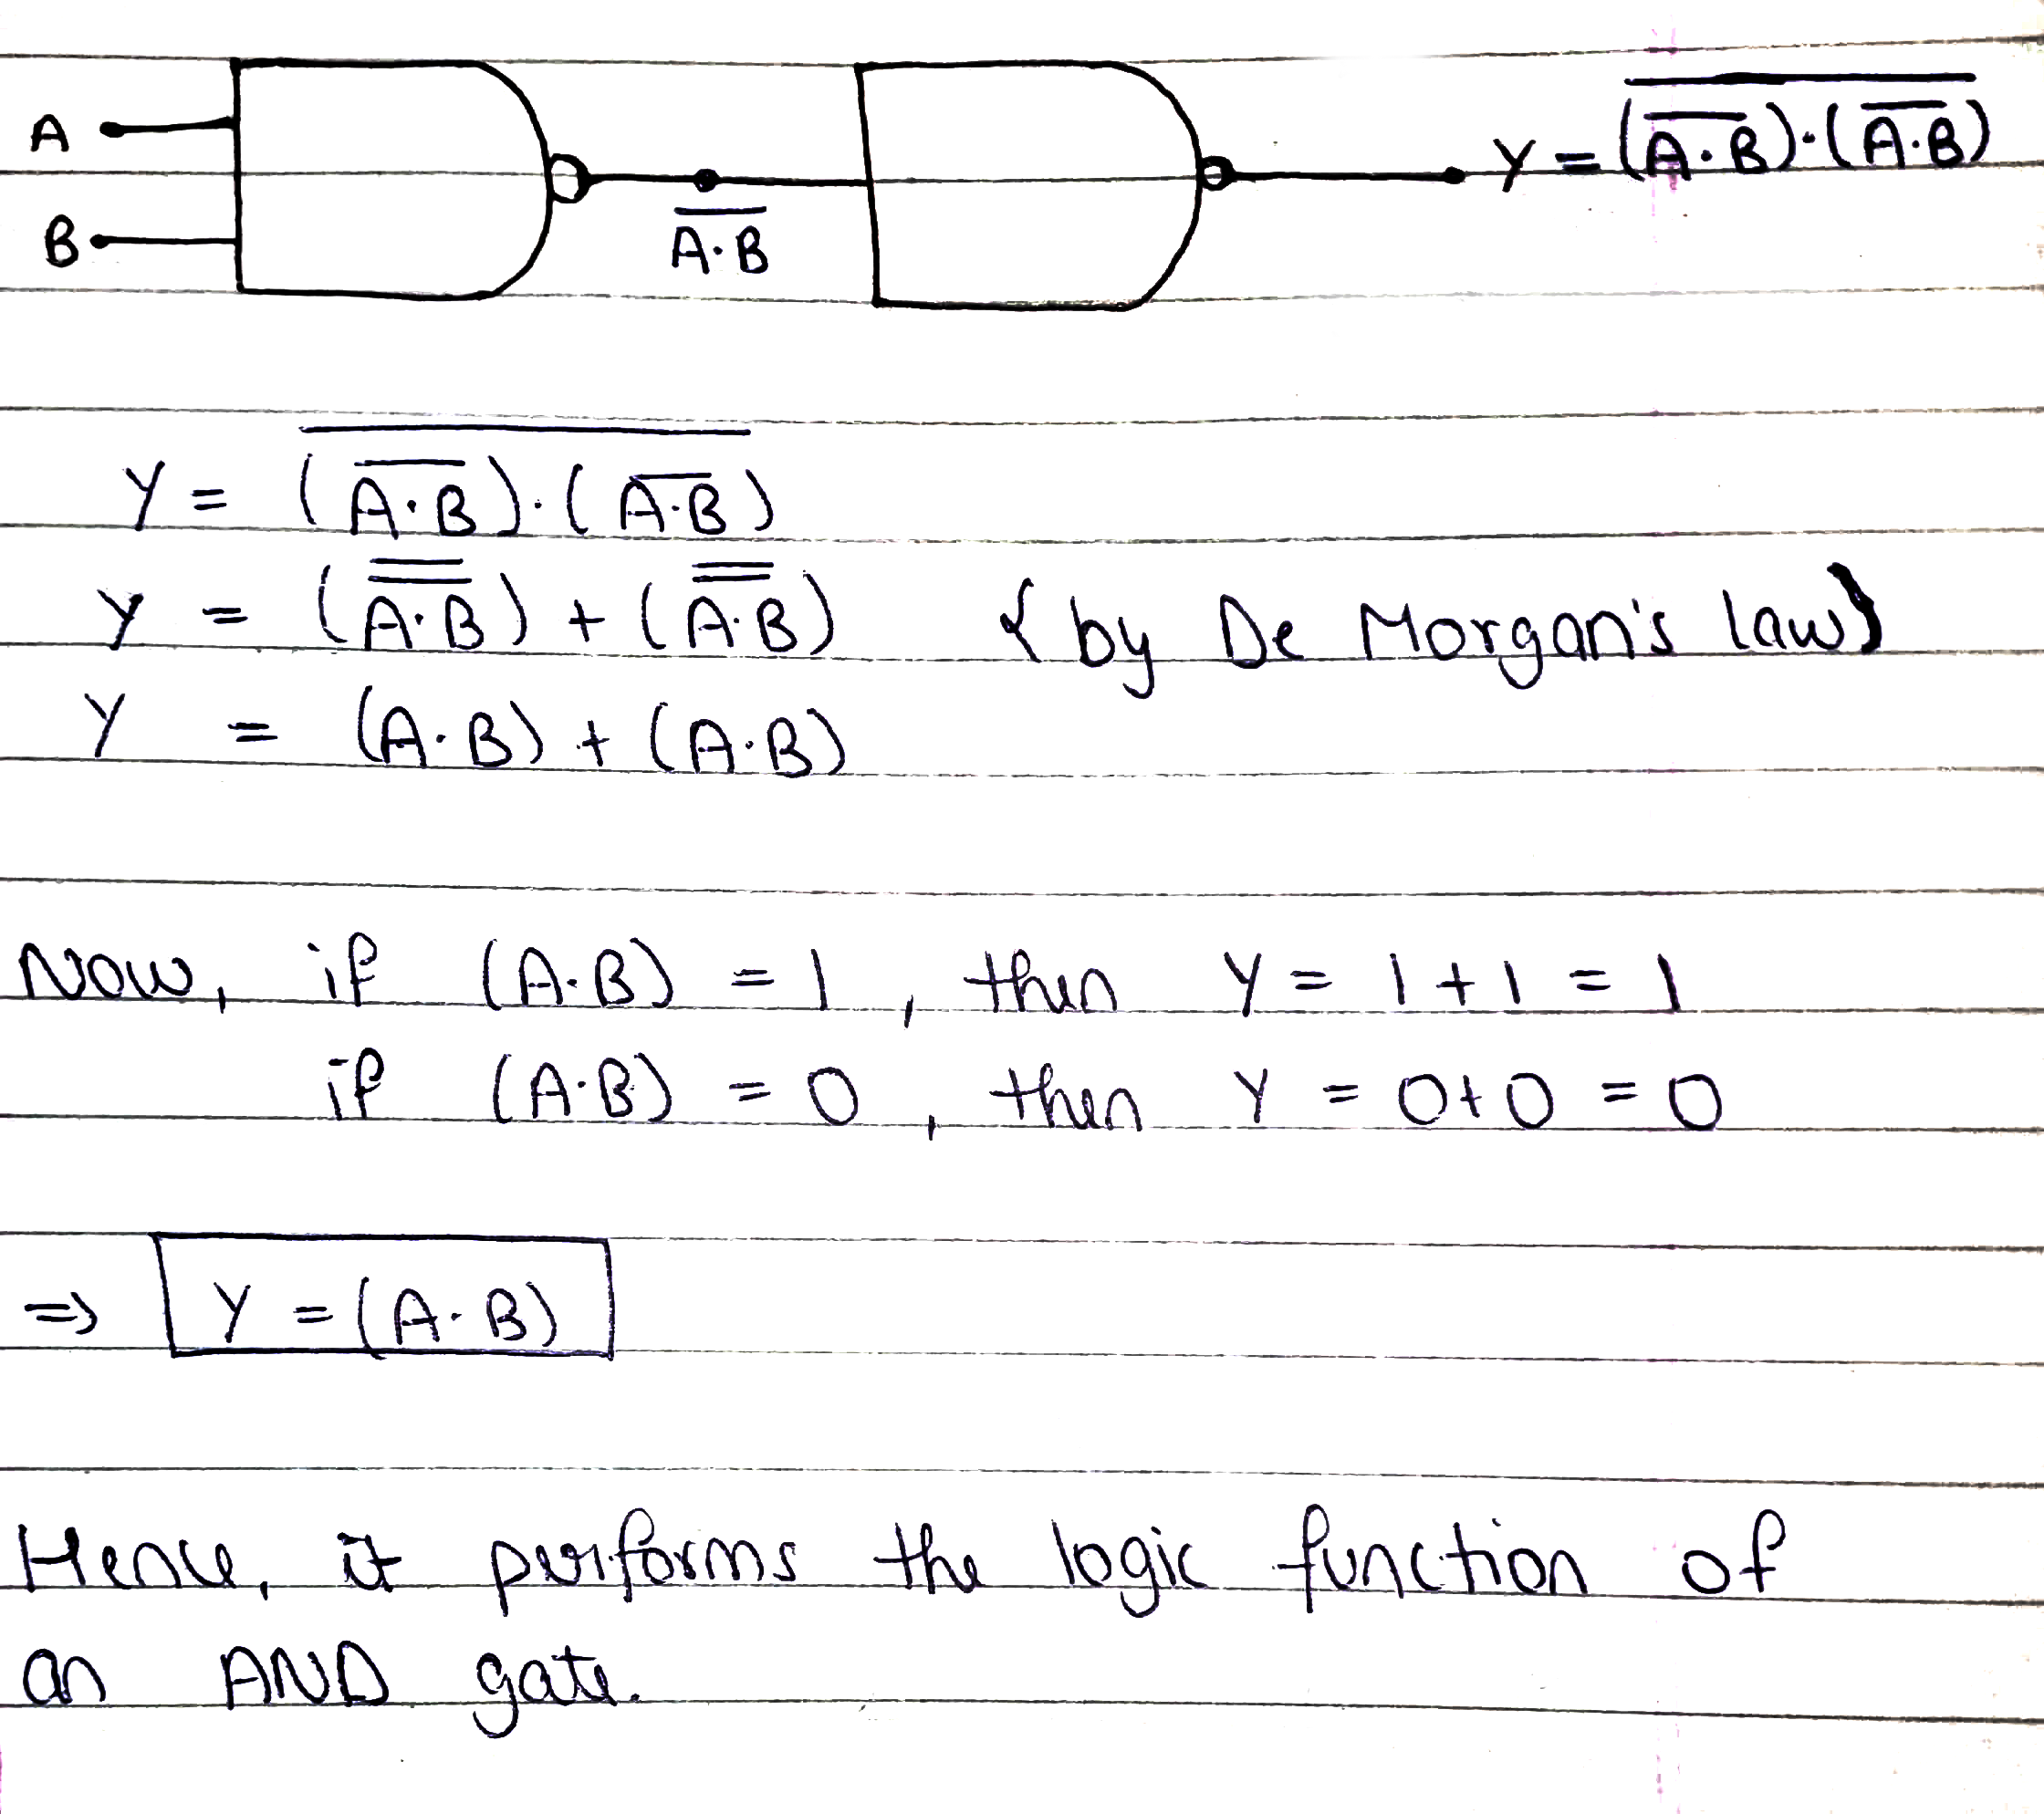 A
B
A̅·̅B̅
Y = \overline{(\overline{A·B})·(\overline{A·B})}
Y = \overline{(\overline{A·B})·(\overline{A·B})}
Y = (\overline{\overline{A·B}}) + (\overline{\overline{A·B}}) {by De Morgan's law}
Y = (A·B) + (A·B)
Now, if (A·B) = 1, then Y = 1 + 1 = 1
if (A·B) = 0, then Y = 0+0 = 0
⇒ Y = (A·B)
Hence, it performs the logic function of
an AND gate.